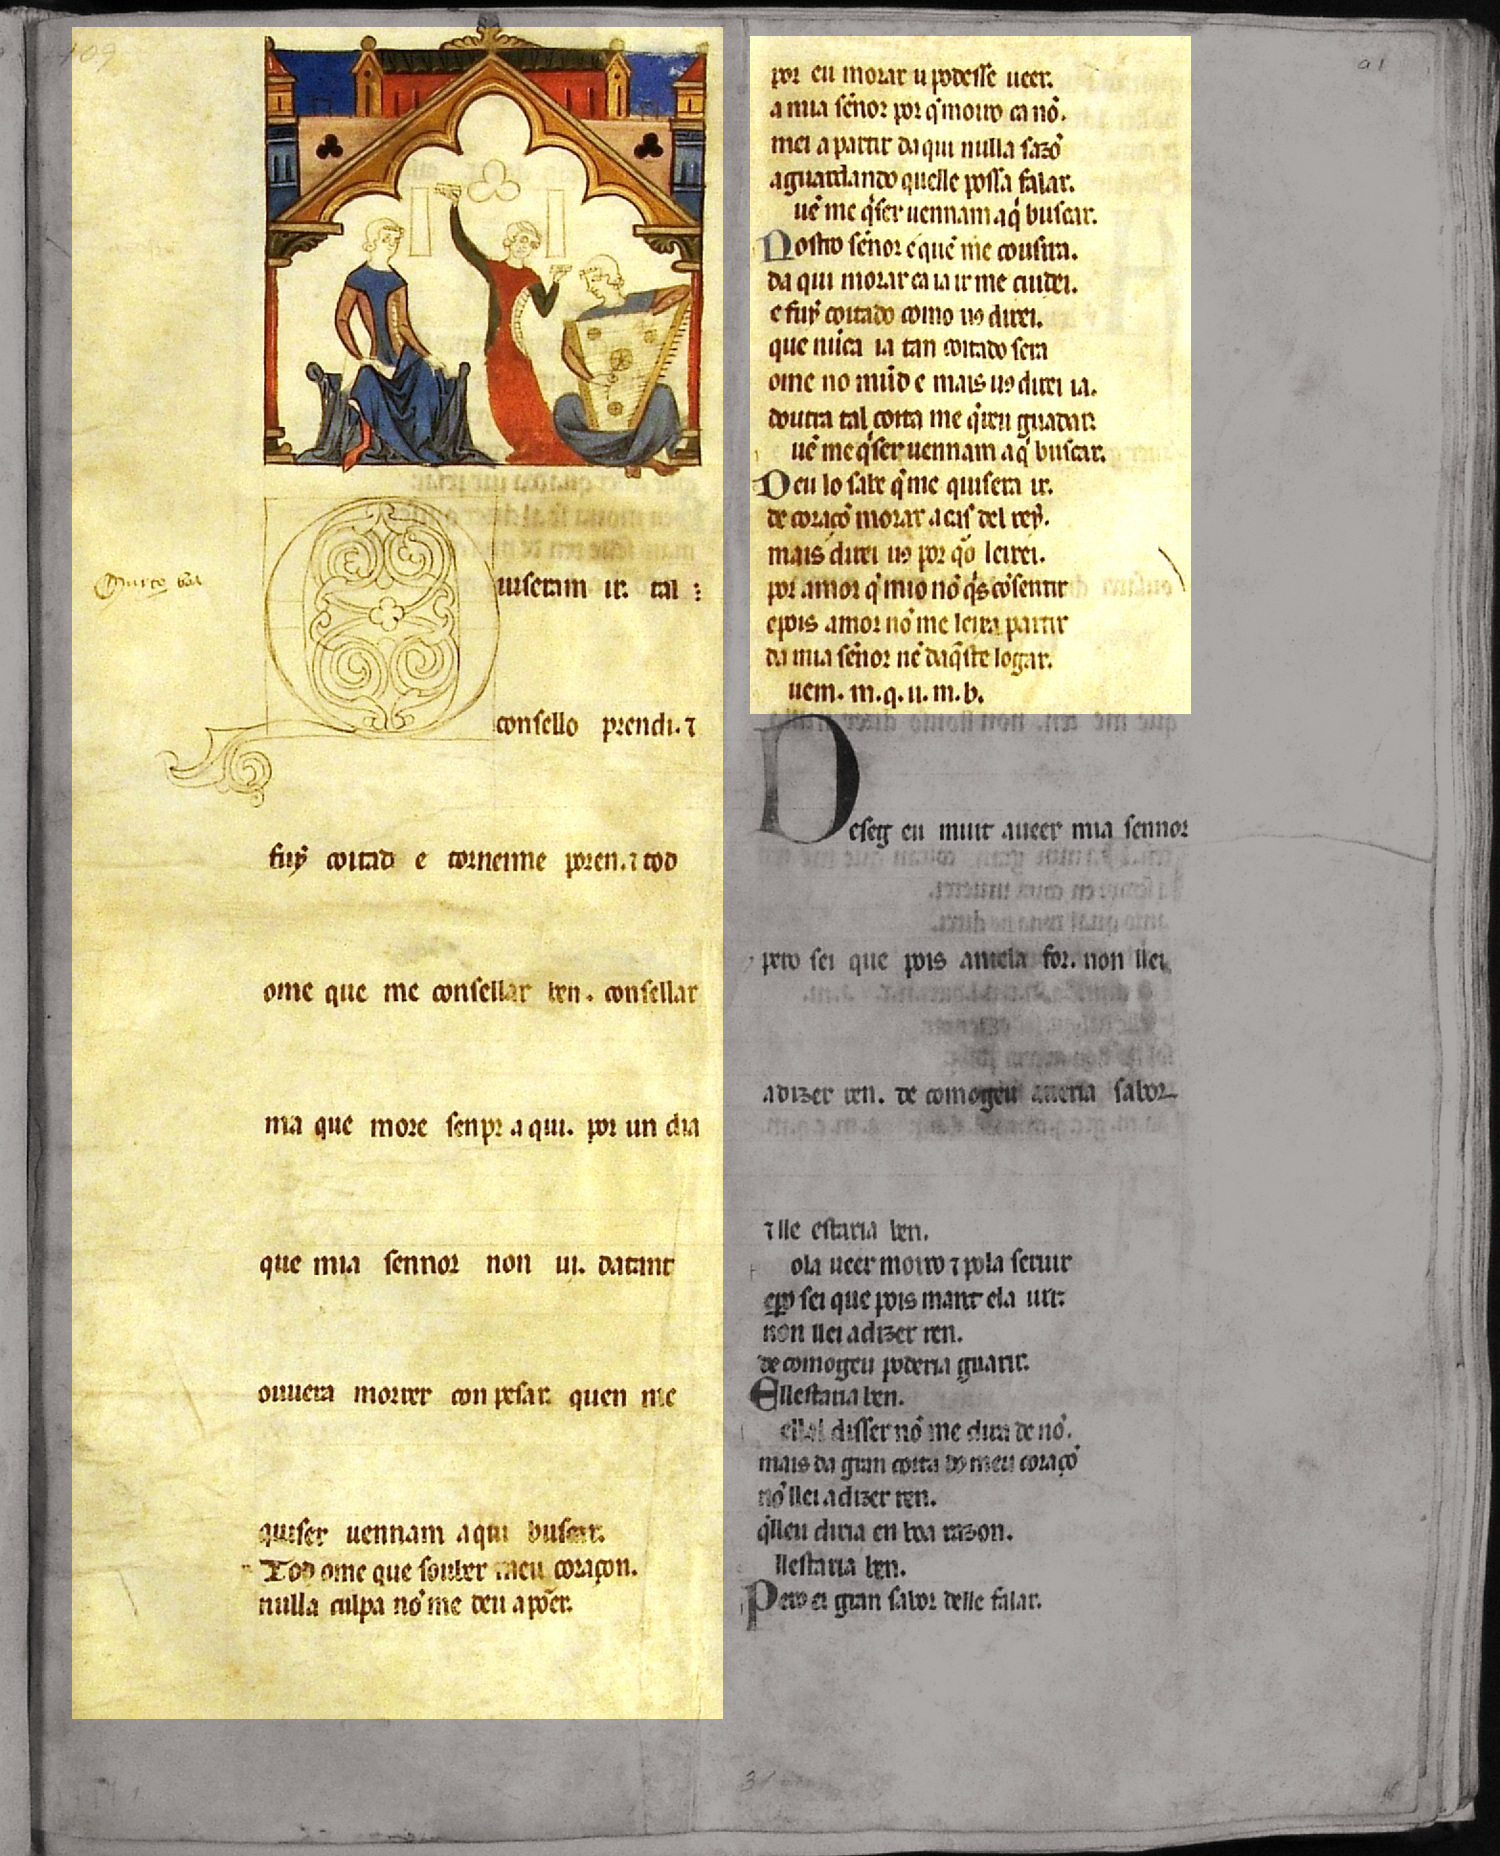 109
uiseram ir. tal
consello prendi. ⁊
fuy coitad e torneime poren. ⁊ tod
ome que me consellar ben. consellar
ma que more senpr aqui. por un dia
que mia sennor non ui. datant
ouuera morrer con pesar. quen me
quiser uennam aqui buscar.
Tod ome que souber meu coraçon.
nulla culpa nō me deu apōer.
por eu morar u podesse ueer.
a mia sēnor por q̄ moiro ca nō.
mei a partir da qui nulla sazō
aguardando quelle possa falar.
uē me q̄ser uennam aq̄ buscar.
Nostro sēnor e quē me cousira.
da qui morar ca ia ir me cuidei.
e fuy coitado como uꝯ direi.
que nūca ia tan coitado sera
ome no mūdo e mais uꝯ direi ia.
doutra tal coita me q̄rreu guadar.
uē me q̄ser uennam aq̄ buscar.
Deu lo sabe q̄ me quisera ir.
de coraçō morar a cas del rey.
mais direi uꝯ por q̄o leixei.
por amor q̄ mio nō q̄s cōsentir
e pois amor nō me leixa partir
da mia sēnor nē daq̄ste logar.
uem. m. q. u. m. b.
Deseg eu muit aueer mia sennor
pero sei que pois antela for. non llei
a dizer ren. de comogeu aueria sabor
⁊ lle estaria ben.
ola ueer moiro ⁊ pola seruir
epero sei que pois mant ela uir:
non llei a dizer ren.
de comogeu poderia guarir.
Ellestaria ben.
disser nō me dira de nō.
mais da gran coita do meu coraçō
nō llei a dizer ren.
q̄lleu diria en boa razon.
llestaria ben.
Pero ei gran sabor delle falar.